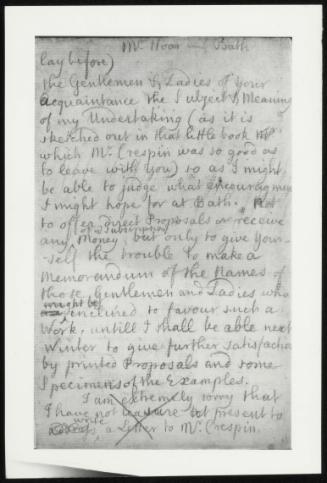 Mr. Hoar Bath
lay before)
the Gentlemen & Ladies of Your
Acquaintance the Subject & Meaning
of my Undertaking (as it is
sketched out in that little book
which Mr. Crespin was so good as
to leave with You) so as I might
be able to judge what Encouragmen
I might hope for at Bath. Not
to offer direct Proposals or receive
any Money of a Subscription, but only to give Your-
-self the trouble to make a
Memorandum of the Names of
those Gentlemen and Ladies who
might be inclined to favour such a
Work, untill I shall be able next
Winter to give further satisfactio
by printed Proposals and some
Specimens of the Examples.
I am extremely sorry that
I have not leasure at present to
write a Letter to Mr. Crespin.